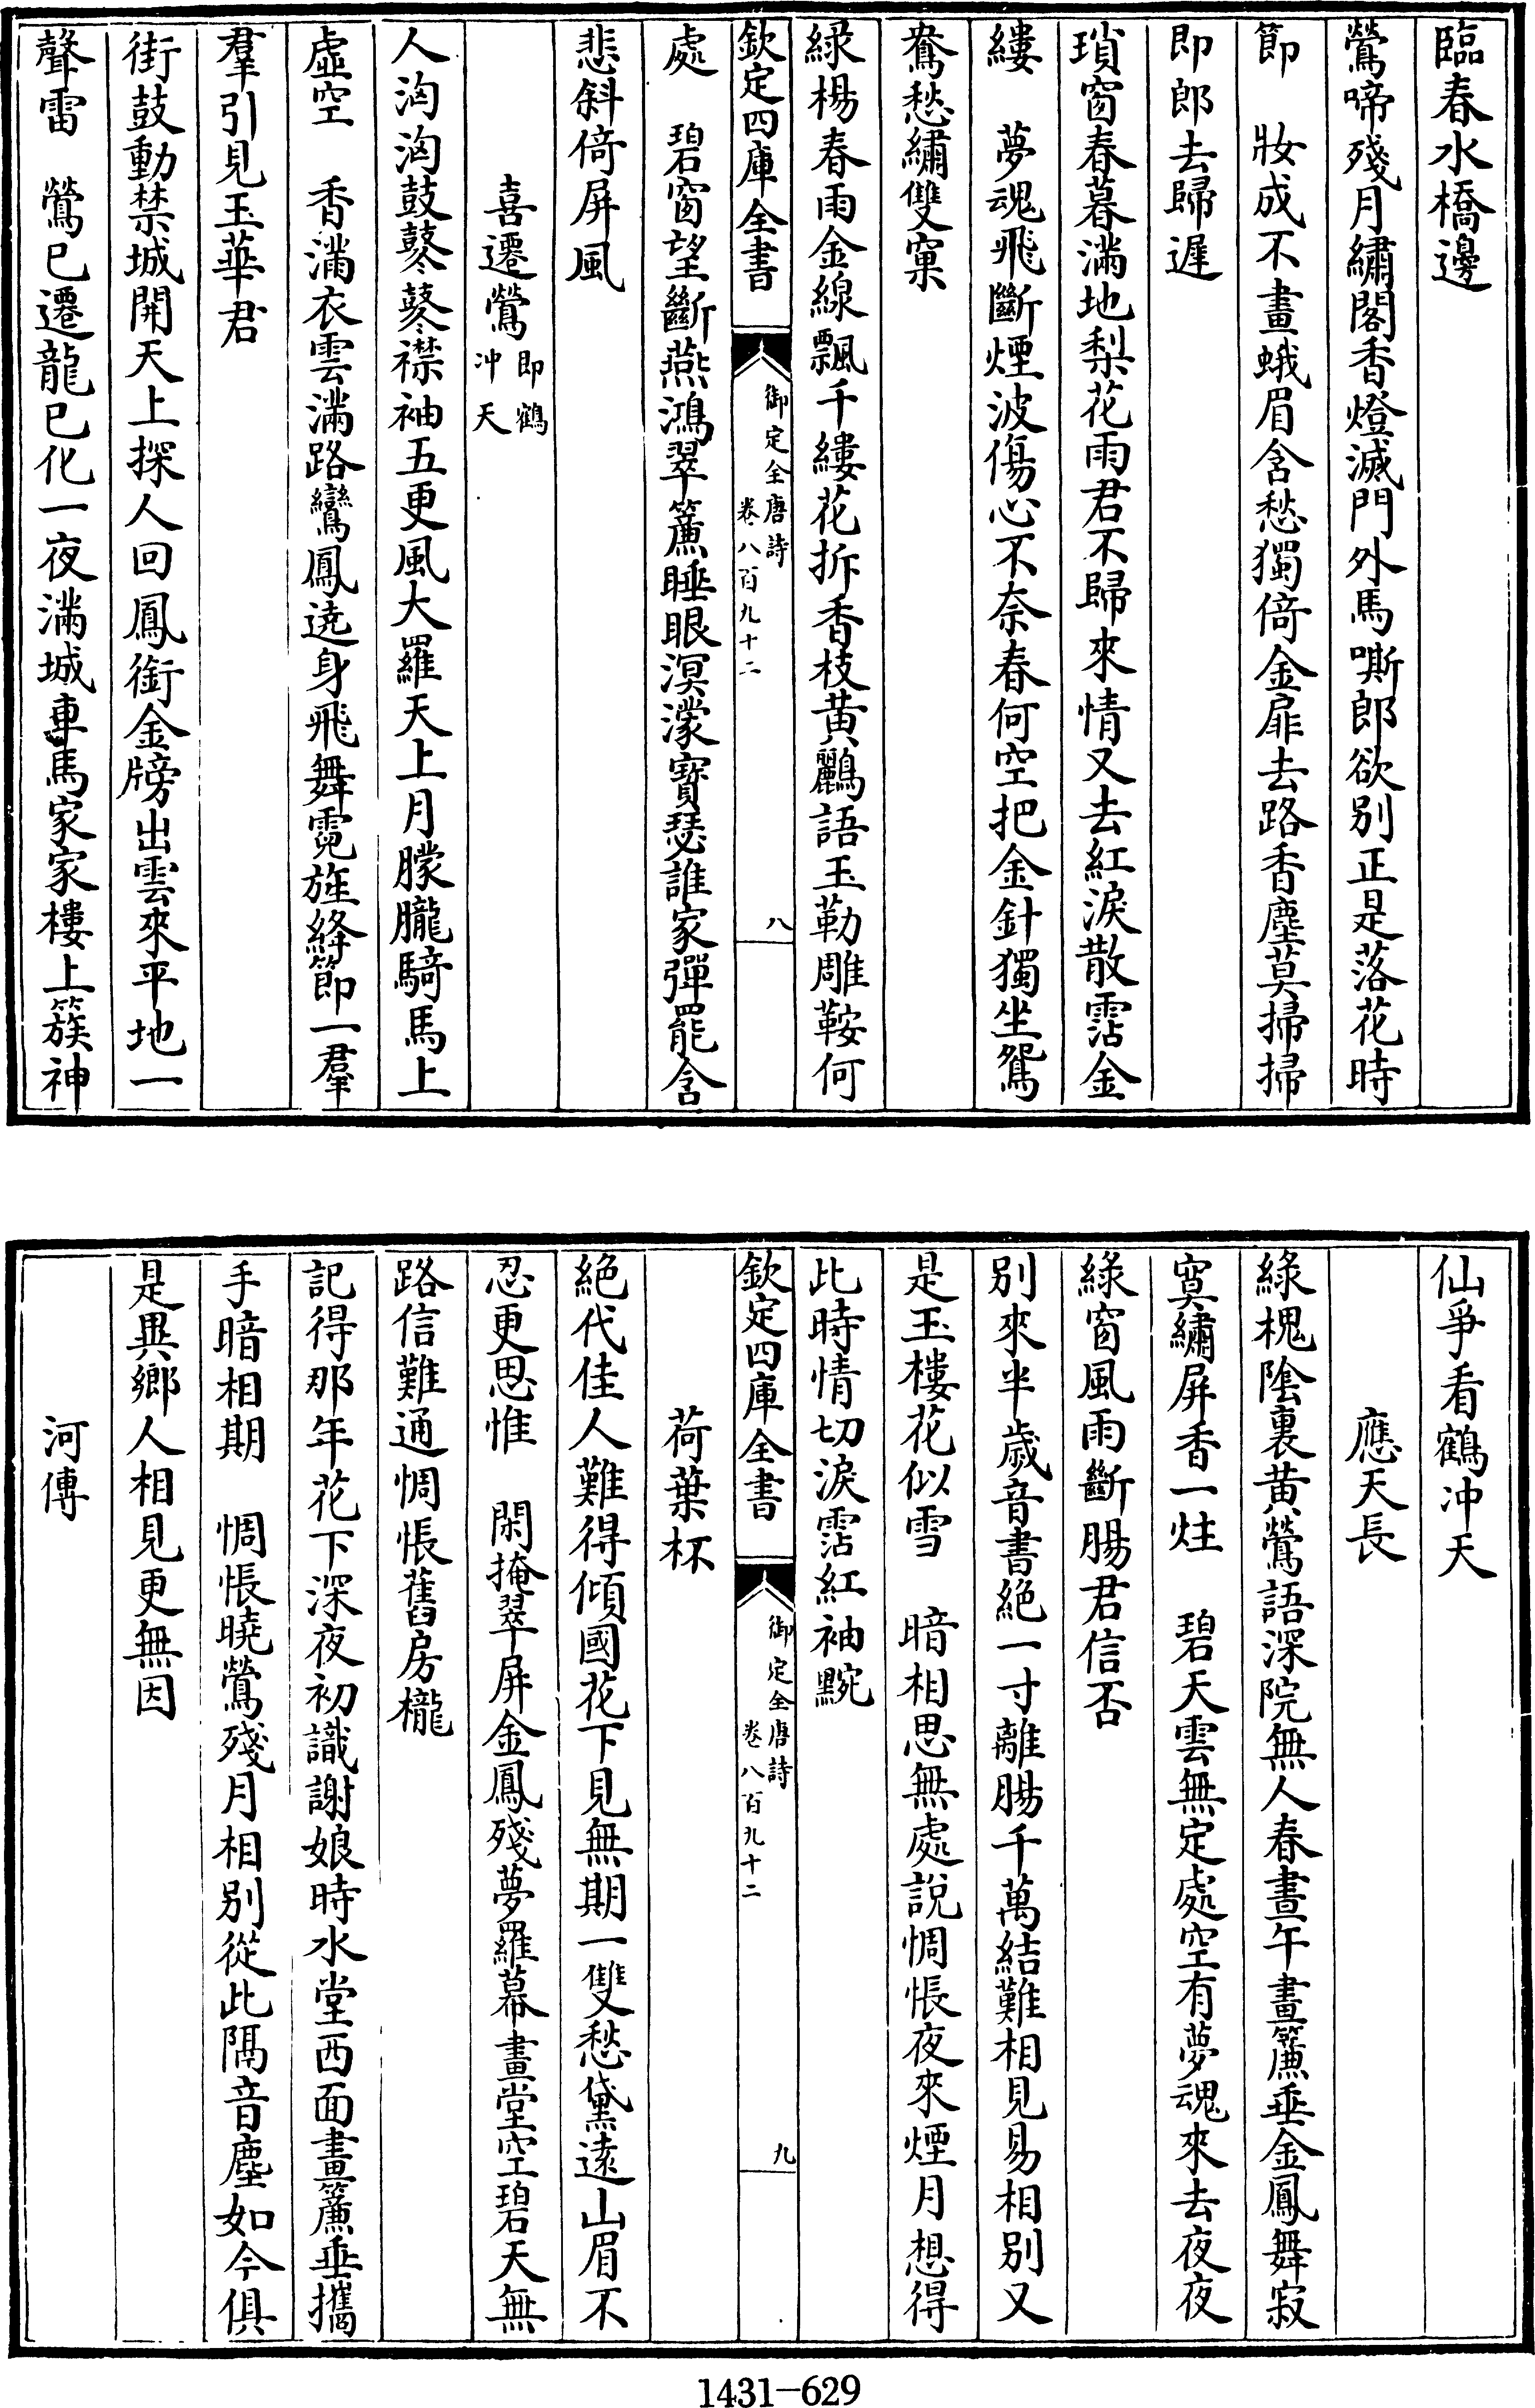 臨春水橋邊
鶯啼殘月繡閣香燈滅門外馬嘶郎欲别正是落花時
節　妝成不畫蛾眉含愁獨倚金扉去路香塵莫掃掃
即郎去歸遲
瑣窗春暮滿地梨花雨君不歸來情又去紅淚散霑金
縷　夢魂飛斷煙波傷心不奈春何空把金針獨坐鴛
鴦愁繡雙窠
緑楊春雨金線飄千縷花拆香枝黄鸝語玉勒雕鞍何
欽定四庫全書
御定全唐詩
卷八百九十二
八
處　碧窗望斷燕鴻翠簾睡眼溟濛寶瑟誰家彈罷含
悲斜倚屏風
喜遷鶯即鶴冲天
人洶洶鼓鼕鼕襟袖五更風大羅天上月朦朧騎馬上
虚空　香滿衣雲滿路鸞鳳遶身飛舞霓旌絳節一羣
羣引見玉華君
街鼓動禁城開天上探人回鳳銜金牓出雲來平地一
聲雷　鶯已遷龍已化一夜滿城車馬家家樓上簇神
仙爭看鶴冲天
應天長
綠槐陰裏黄鶯語深院無人春晝午畫簾垂金鳳舞寂
寞繡屏香一炷　碧天雲無定處空有夢魂來去夜夜
綠窗風雨斷腸君信否
别來半歲音書絶一寸離腸千萬結難相見易相别又
是玉樓花似雪　暗相思無處說惆悵夜來煙月想得
此時情切淚霑紅袖黦
欽定四庫全書
御定全唐詩
卷八百九十二
九
荷葉杯
絶代佳人難得傾國花下見無期一雙愁黛遠山眉不
忍更思惟　閑掩翠屏金鳳殘夢羅幕畫堂空碧天無
路信難通惆悵舊房櫳
記得那年花下深夜初識謝娘時水堂西面畫簾垂攜
手暗相期　惆悵曉鶯殘月相别從此隔音塵如今俱
是異鄉人相見更無因
河傳
1431-629